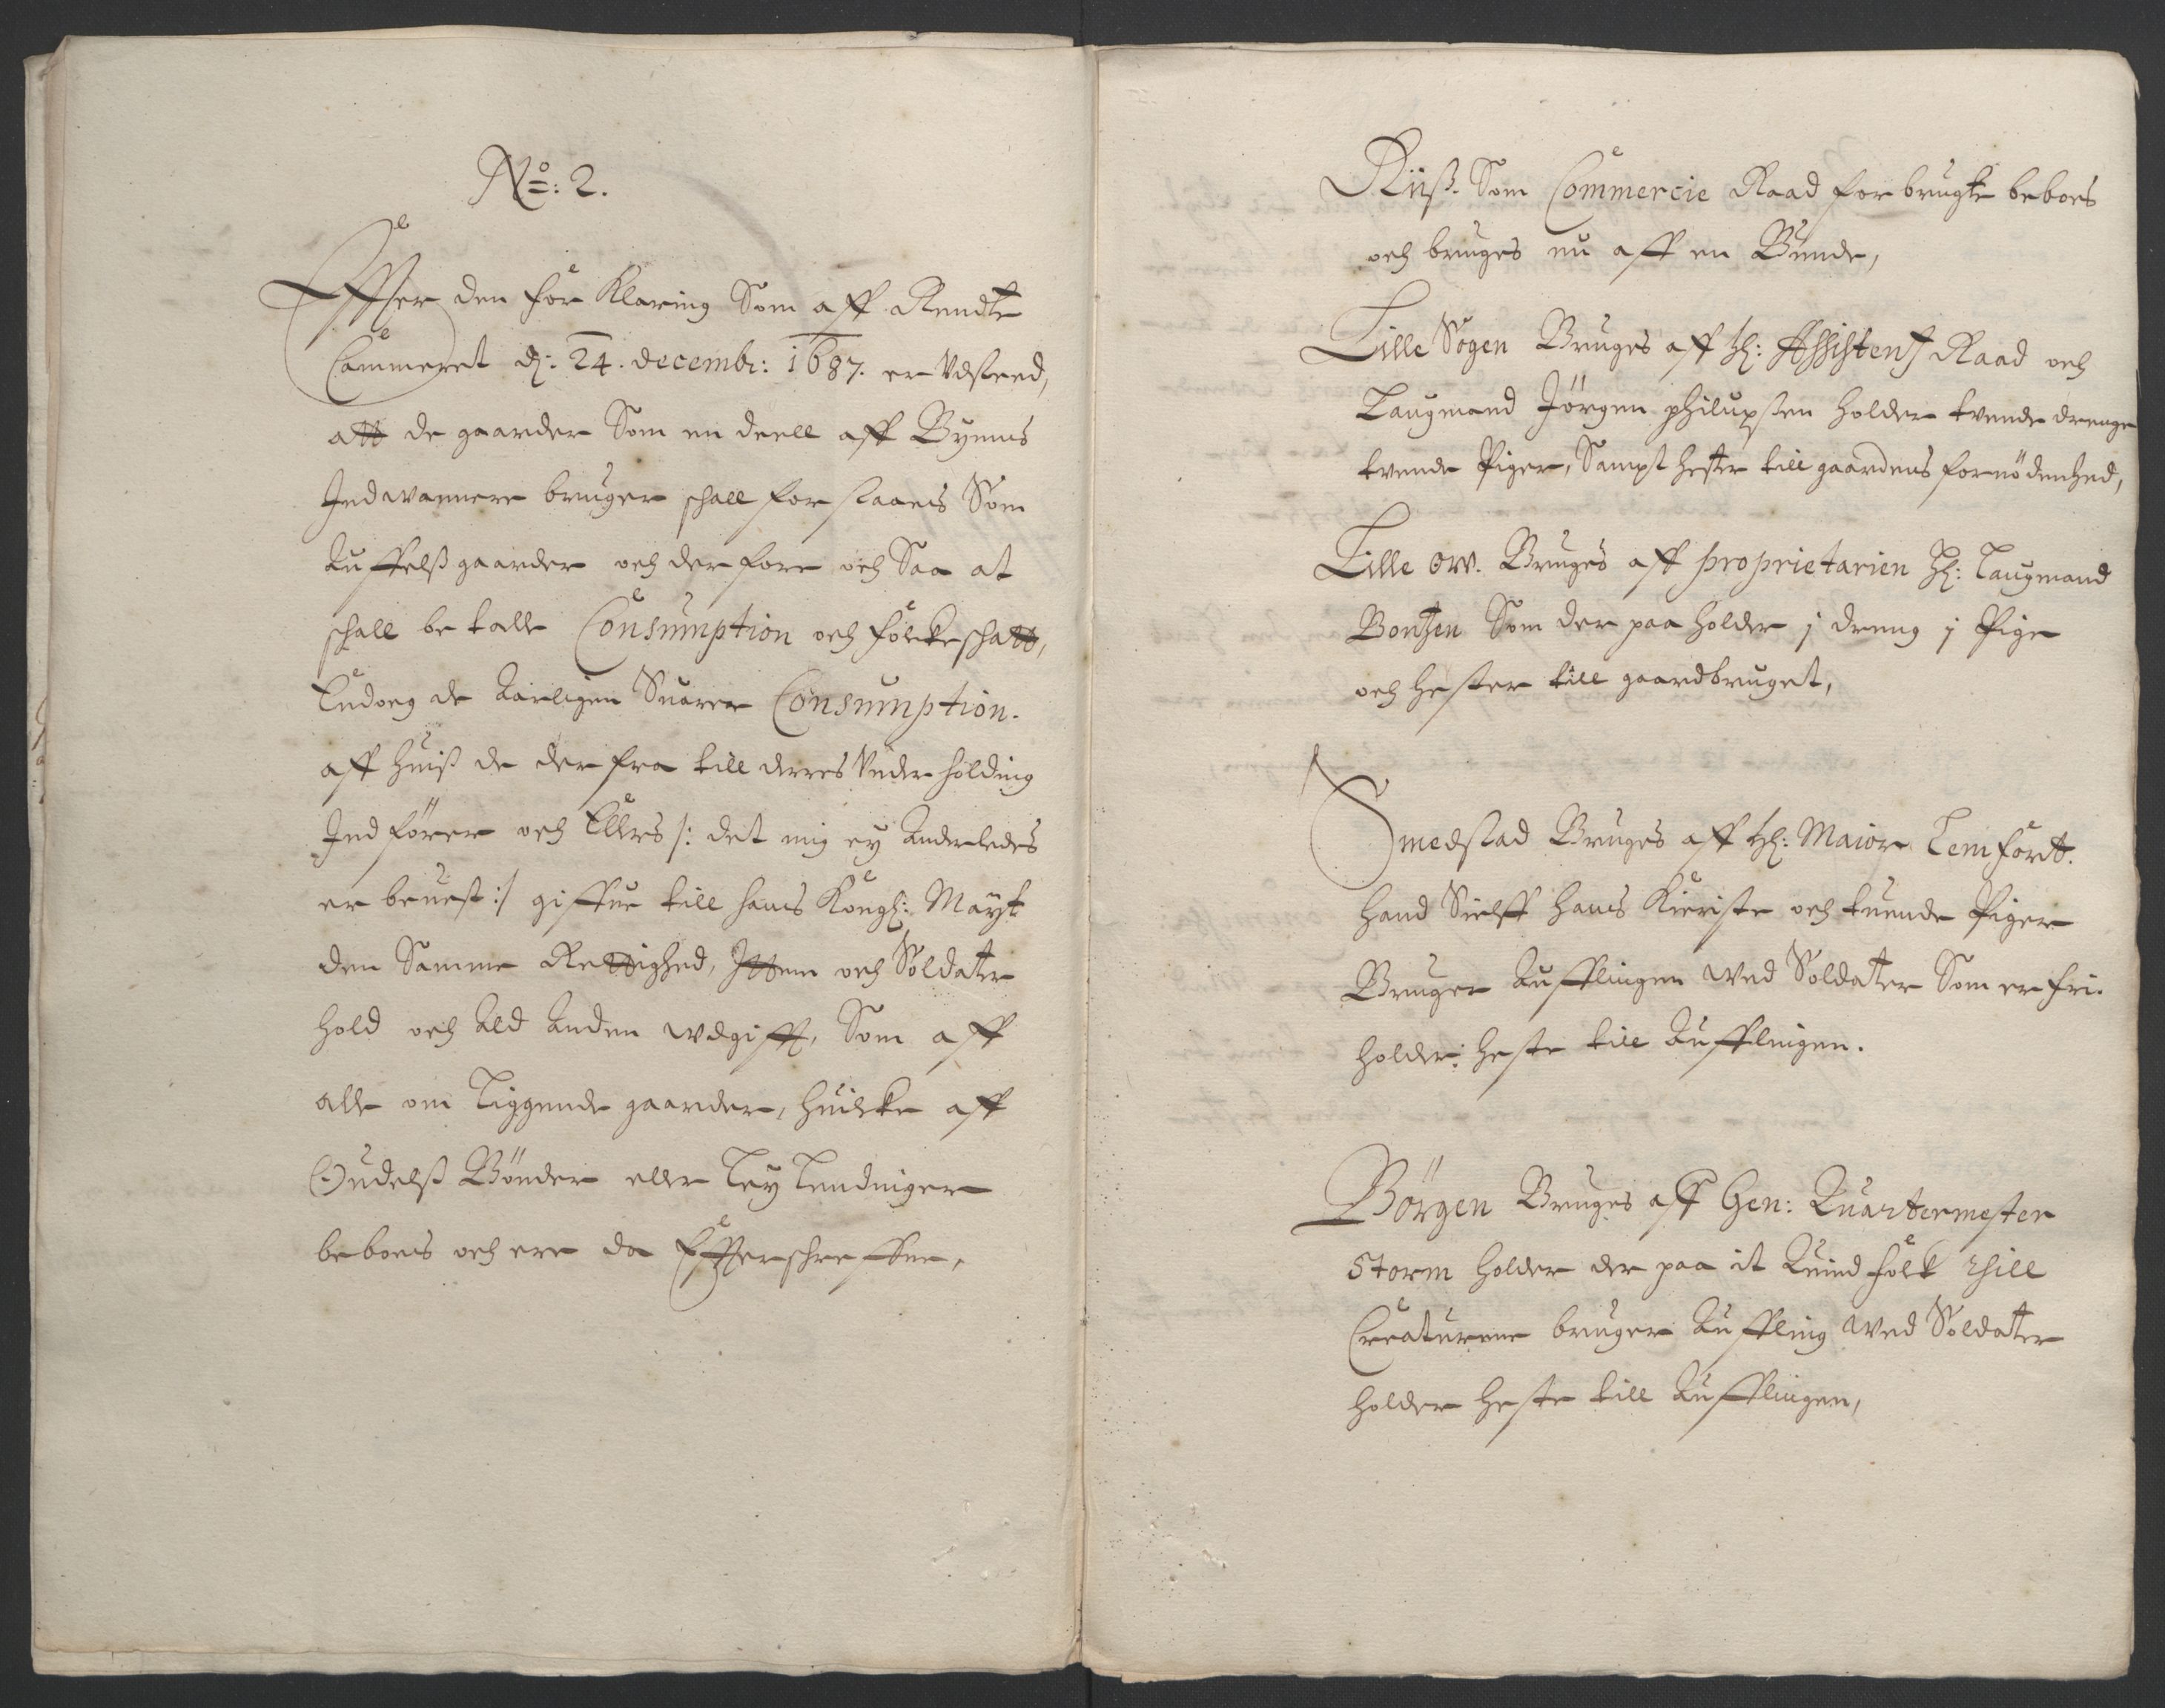 No: 2.
Effter den for Klaring Som aff Rendte
Cammeret d: 24. decembr: 1687. er Vdsteed,
att de gaarder Som en deell aff Byens
Indwaanere bruger schall for staaes Som
Auffelsß gaarder och der fore och Saa at
schall be talle Consumption och folcke schatt,
Endog de Aarligen Suarer Consumption.
aff huiß de der fra till deres Vnder holding
Ind förer och Ellers /: det mig ey Anderledes
er beuest :/ giffue till hans Kongl: Mayt
den Samme Rettighed, Ittem och Soldater
hold och Ald Anden wdgifft, Som aff
alle om Liggende gaarder, huilcke aff
Oudelsß Bönder eller Leylendinger
beboes och ere da Effterschreffne,
Riiß. Som Commercie Raad for brugte beboes
och bruges nu aff en Bunde,
Lille Sogen Bruges aff Hl: Assistens Raad och
Laugmand Jörgen philupsen holder tvende drenge
tvende Piger, Sampt hester till gaardens fornödenhed,
Lille ow. Bruges aff proprietarien Hl: Laugmand
Bontzen Som der paa holder j dreng j Pige
och hester till gaardbruget,
Smedstad Bruges aff Hl: Maior Lemfort.
hand Sielff hans Kieriste och tuende Piger
Bruger Aufflingen wed Soldater Som er fri.
holder heste till Aufflingen.
Börgen Bruges aff Gen: Quartermester
Storm holder der paa it Quind folk thill
Creaturene bruger Auffling wed Soldater
holder heste till Aufflingen,